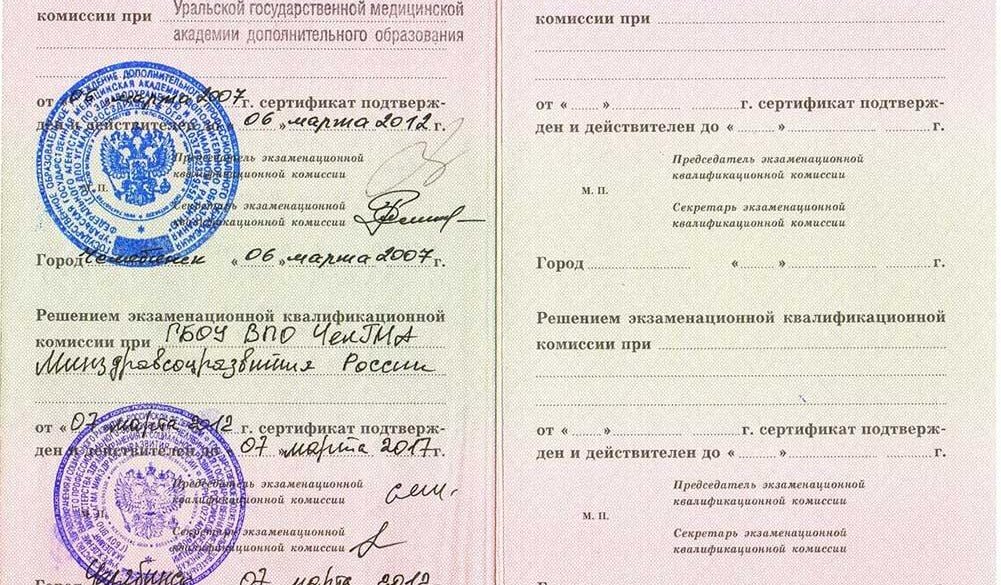 комиссии при Уральской государственной медицинской
академии дополнительного образования
от «06» марта 2007 г. сертификат подтверж-
ден и действителен до «06» марта 2012 г.
Председатель экзаменационной
квалификационной комиссии
М. П.
Секретарь экзаменационной
квалификационной комиссии
Город Челябинск «06» марта 2007 г.
Решением экзаменационной квалификационной
комиссии при ГБОУ ВПО ЧелГМА
Минздравсоцразвития России
от «07» марта 2012 г. сертификат подтверж-
ден и действителен до «07» марта 2017 г.
Председатель экзаменационной
квалификационной комиссии
Секретарь экзаменационной
квалификационной комиссии
Город Челябинск 07 марта 2012
комиссии при
от « » г. сертификат подтверж-
ден и действителен до « » г.
Председатель экзаменационной
квалификационной комиссии
М. П.
Секретарь экзаменационной
квалификационной комиссии
Город « » г.
Решением экзаменационной квалификационной
комиссии при
от « » г. сертификат подтверж-
ден и действителен до « » г.
Председатель экзаменационной
квалификационной комиссии
М. П.
Секретарь экзаменационной
квалификационной комиссии